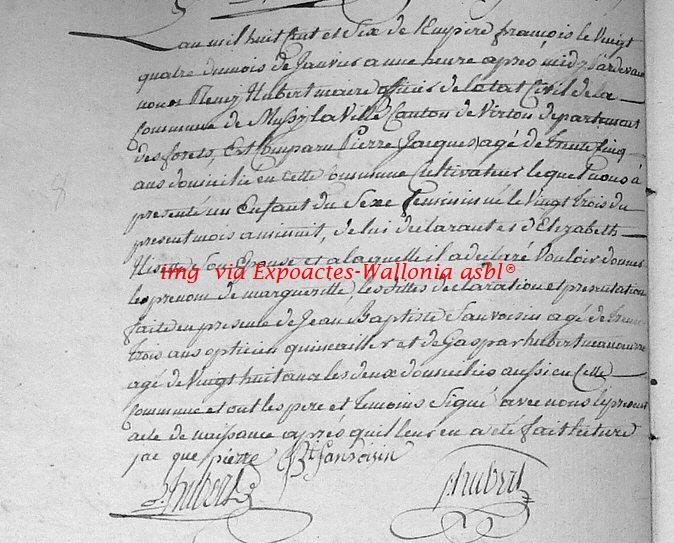 L'an mil huit Cent et Six de l'Empire francois le Vingt
quatre du mois de Janvier a une heure apres midy Pardevant
nous Remy Hubert maire officier de l'etat Civil de la
Commune de Mussy la Ville Canton de Virton departement
des forets, Est Comparu Pierre Jacques agé de trente Cinq
ans domicilié en cette commune Cultivateur lequel nous à
presenté un Enfant du Sexe feminin né le Vingt trois du
present mois a minuit, de lui declarant et d'Elizabeth
son Epouse et a laquelle il a declaré Vouloir donner
img via Expoactes-Wallonia asbl®
les prenom de margueritte, les dittes declaration et presentation
faite en presence de Jean Baptiste Sauvoisin agé de trente
trois ans opticien quincailler et de Gaspar hubert manoeuvre
agé de Vingt huit ans les deux domicilies aussi en Cette
Commune et ont les pere et temoins Signé avec nous le present
acte de naissance après qu'il leur en a été fait lecture
jac que pierre Bt Sauvoisin
hubert hubert